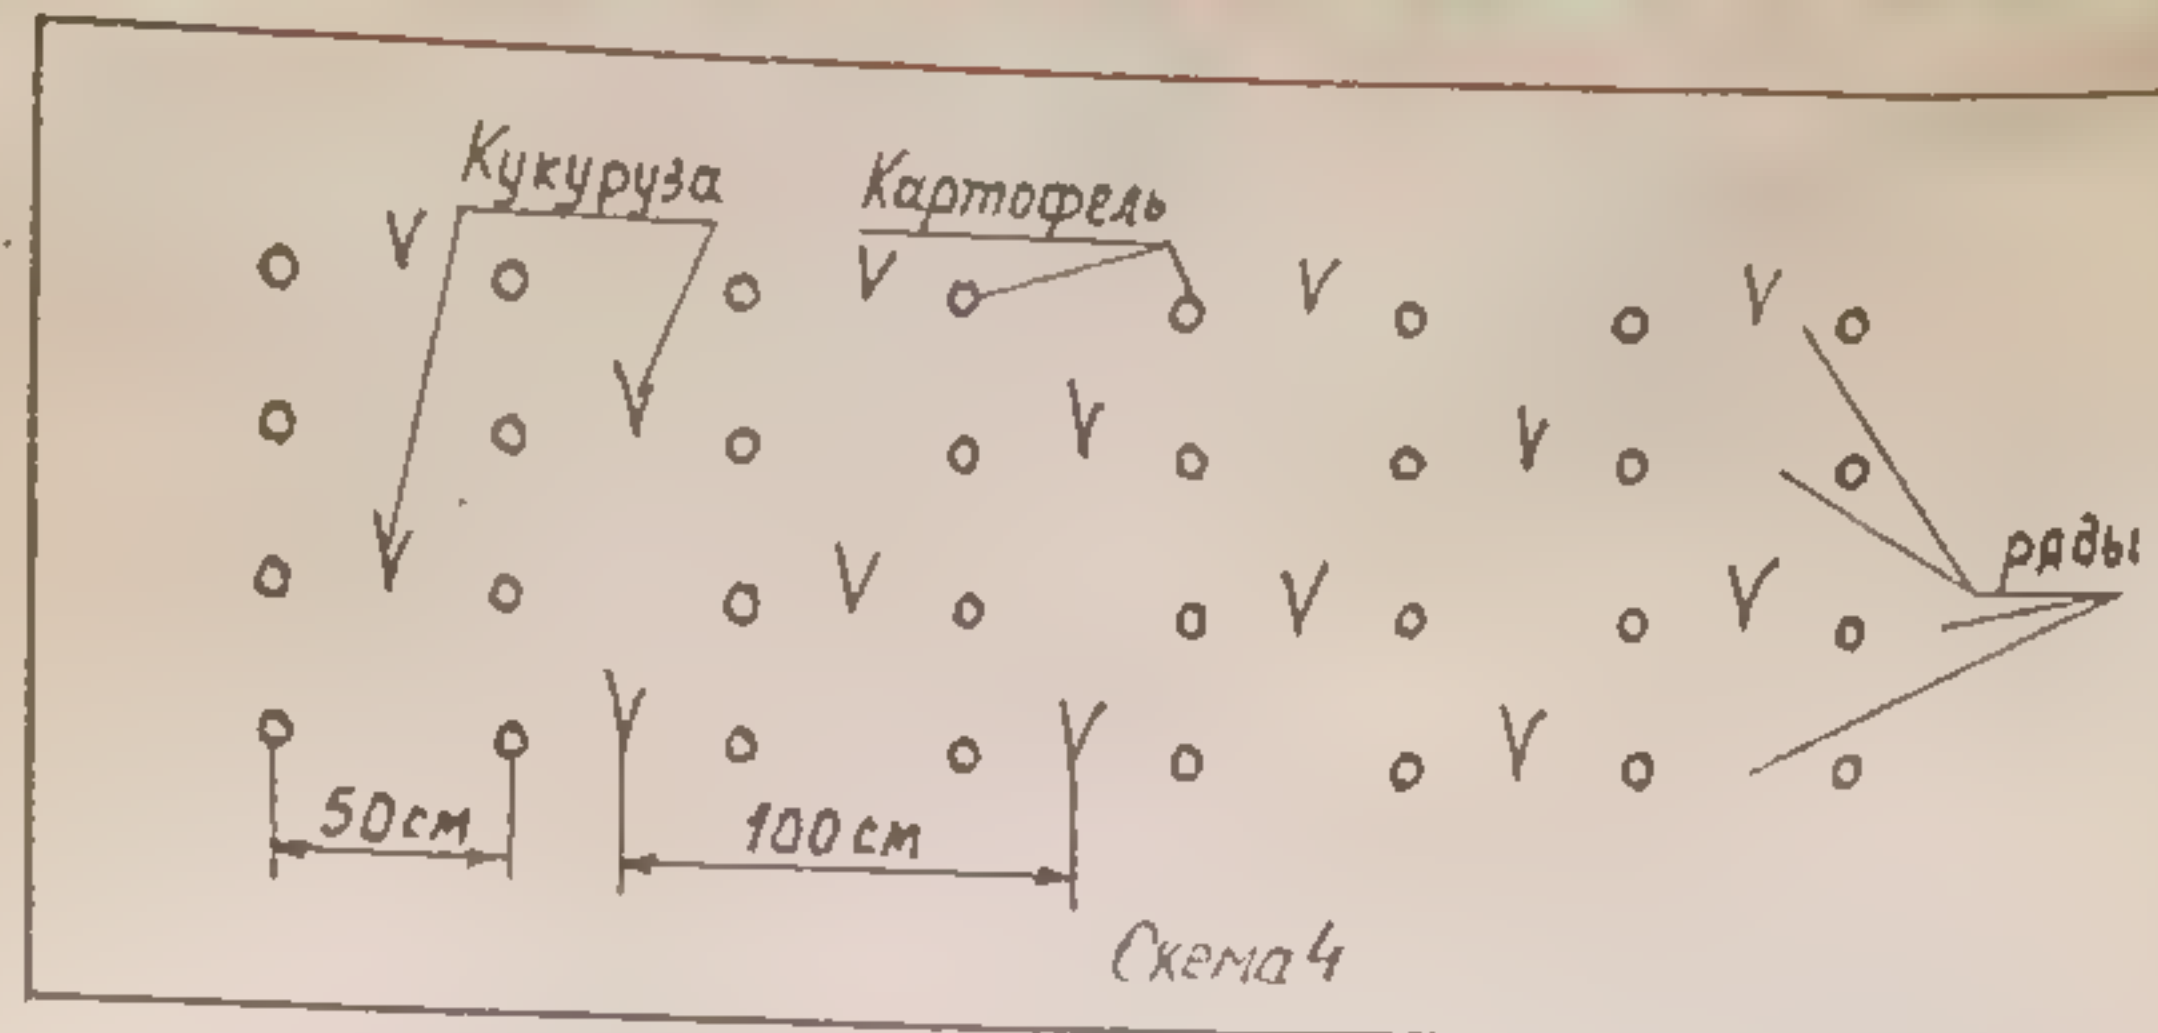 Кукуруза
Картофель
ряды
50 см
100 см
Схема 4